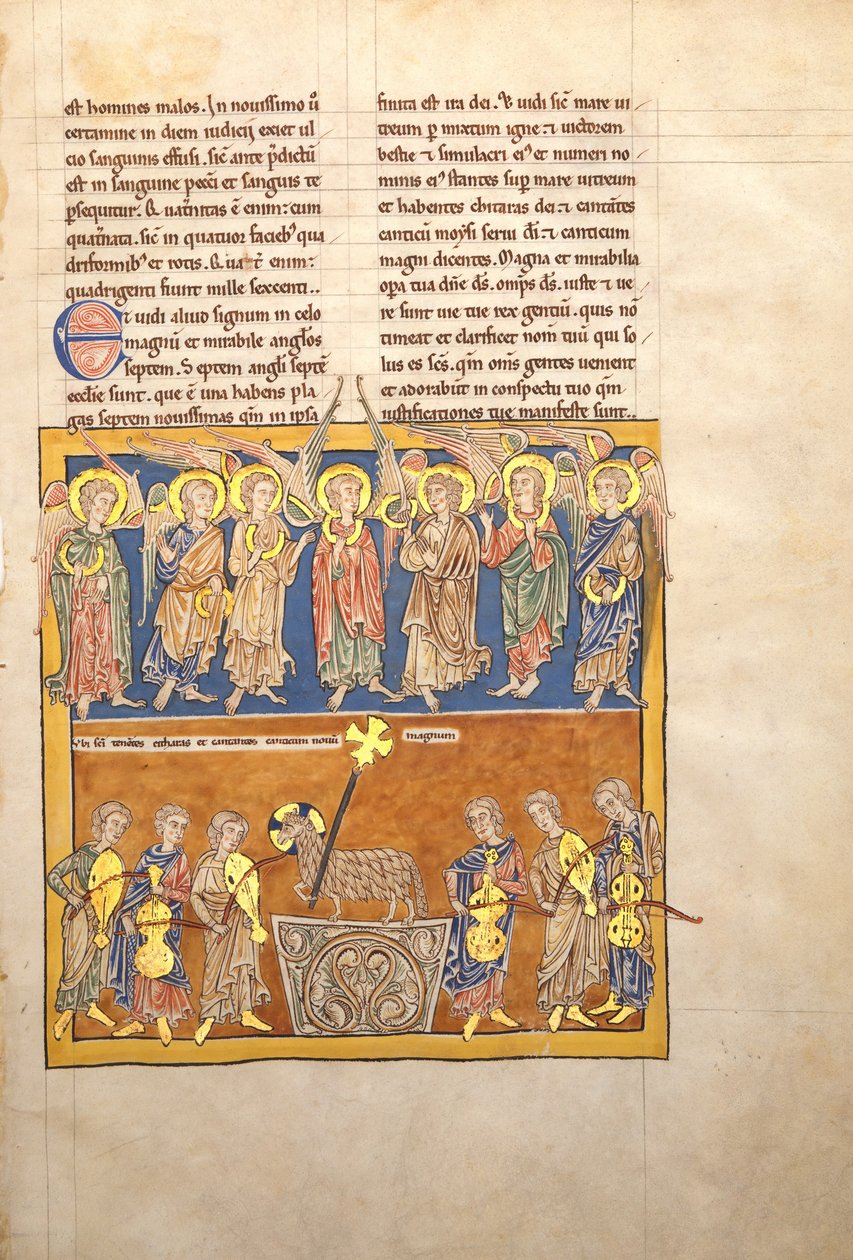 est homines malos. In novissimo ů
certamine in diem iudicij exiet ul
cio sanguinis effusi. sic̄ ante p̄dictū
est in sanguine pecc̄i et sanguis te
ꝑsequitur. Quat̄nitas ē enim: cum
quat̄nata. sic̄ in quatuor faciebꝰ qua
driformibꝰ et rotis. Quat̄ enim:
quadrigenti fiunt mille sexcenti..
Et vidi aliud signum in celo
magnū et mirabile angl̄os
septem. Septem angl̄i septē
eccl̄ie sunt. que ē una habens pla
gas septem novissimas qm̄ in ipsa
finita est ira dei. & vidi sic̄ mare vi
treum ꝑ mixtum igne ⁊ victorem
bestie ⁊ simulacri eiꝰ et numeri no
minis eiꝰ stantes suꝑ mare vitreum
et habentes chitaras dei ⁊ cantātes
canticū moysi serui dī ⁊ canticum
magni dicentes. Magna et mirabilia
oꝑa tua dn̄e ds̄. omp̄s ds̄. iuste ⁊ ue
re sunt uie tue rex gentiū. quis nō
timeat et clarificet nom̄ tuū qui so
lus es sc̄s. qm̄ om̄s gentes uenient
et adorabūt in conspectu tuo qm̄
iustificationes tue manifeste sunt..
Ubi sc̄i tenētes citharas et cantantes canticum nouū magnum